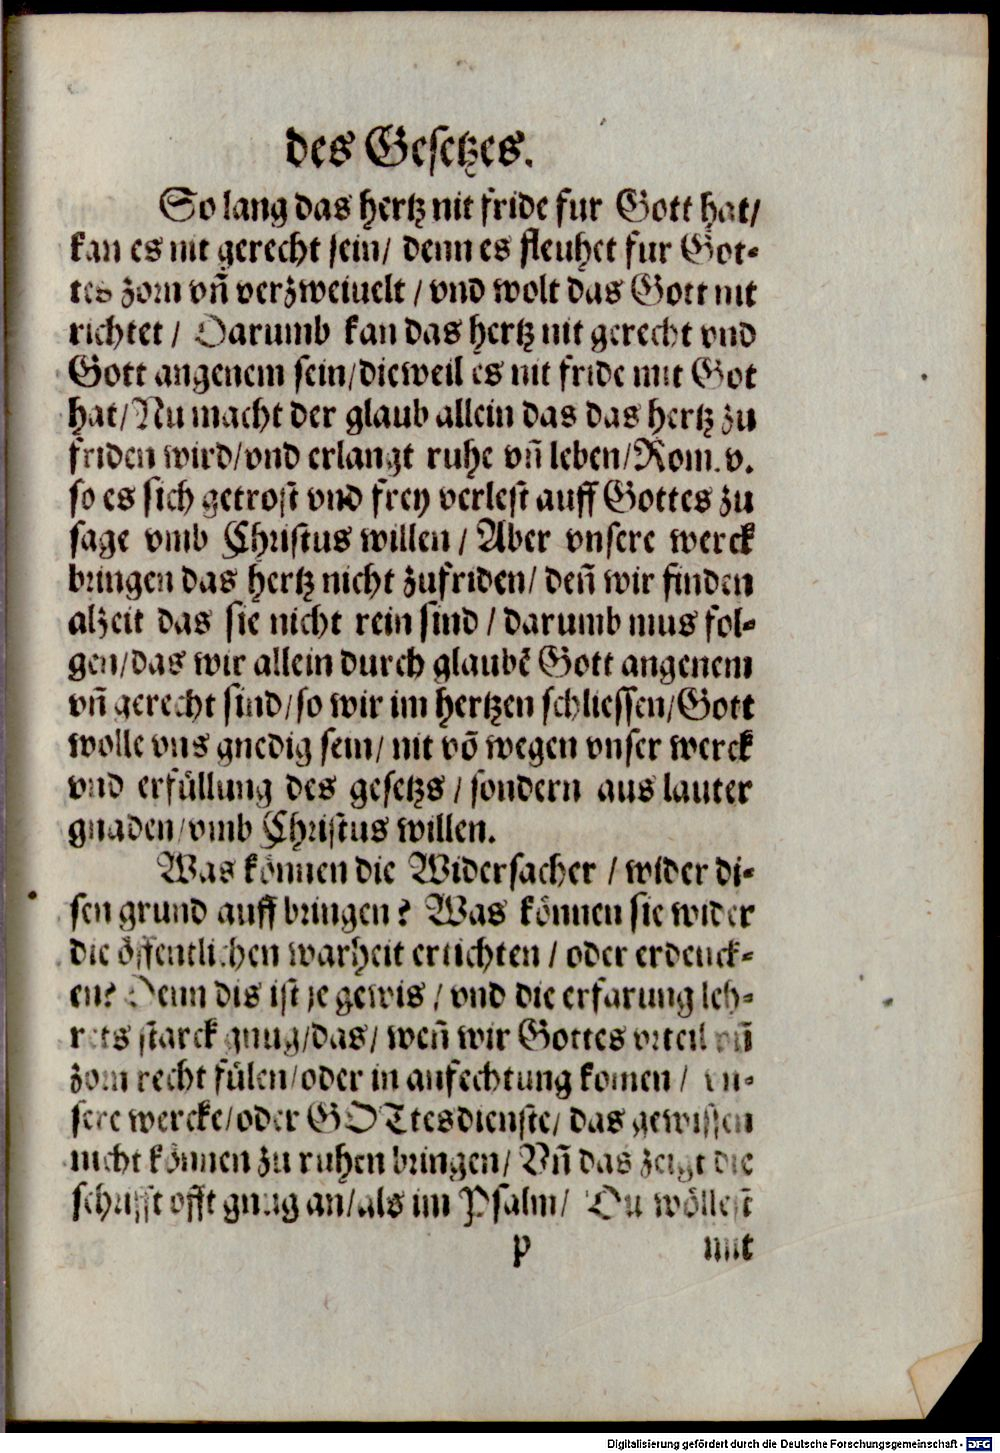 des Gesetzes.
So lang das hertz nit fride fur Gott hat/
kan es nit gerecht sein/ denn es fleuhet fur Got-
tes zorn vñ verzweiuelt / vnd wolt das Gott nit
richtet / Darumb kan das hertz nit gerecht vnd
Gott angenem sein/dieweil es nit fride mit Got
hat/Nu macht der glaub allein das das hertz zu
friden wird/vnd erlangt ruhe vñ leben/Rom. v.
so es sich getrost vnd frey verlest auff Gottes zu
sage vmb Christus willen / Aber vnsere werck
bringen das hertz nicht zufriden/ deñ wir finden
alzeit das sie nicht rein sind / darumb mus fol-
gen/das wir allein durch glaubē Gott angenem
vñ gerecht sind/so wir im hertzen schliessen/Gott
wolle vns gnedig sein/ nit võ wegen vnser werck
vnd erfüllung des gesetzs / sondern aus lauter
gnaden/vmb Christus willen.
Was können die Widersacher / wider di-
sen grund auff bringen? Was können sie wider
die öffentlichen warheit ertichten / oder erdenck-
en? Denn dis ist je gewis / vnd die erfarung leh-
rets starck gnug/das/ weñ wir Gottes vrteil vñ
zorn recht fülen/oder in anfechtung komen / vn-
sere wercke/oder GOTtesdienste/ das gewissen
nicht können zu ruhen bringen/ Vñ das zeigt die
schrifft offt gnug an/als im Psalm/ Du wöllest
p mit
Digitalisierung gefördert durch die Deutsche Forschungsgemeinschaft - DFG